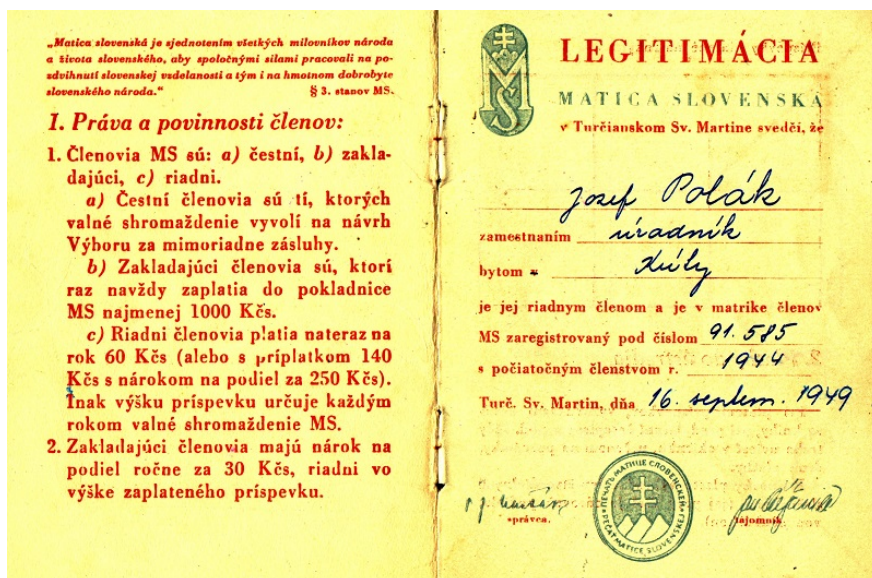 „Matica slovenská je sjednotením všetkých milovníkov národa
a života slovenského, aby spoločnými silami pracovali na po-
zdvihnutí slovenskej vzdelanosti a tým i na hmotnom dobrobyte
slovenského národa.“ § 3. stanov MS.
I. Práva a povinnosti členov:
1. Členovia MS sú: a) čestní, b) zakla-
dajúci, c) riadni.
a) Čestní členovia sú tí, ktorých
valné shromaždenie vyvolí na návrh
Výboru za mimoriadne zásluhy.
b) Zakladajúci členovia sú, ktorí
raz navždy zaplatia do pokladnice
MS najmenej 1000 Kčs.
c) Riadni členovia platia nateraz na
rok 60 Kčs (alebo s príplatkom 140
Kčs s nárokom na podiel za 250 Kčs).
Inak výšku príspevku určuje každým
rokom valné shromaždenie MS.
2. Zakladajúci členovia majú nárok na
podiel ročne za 30 Kčs, riadni vo
výške zaplateného príspevku.
MS
LEGITIMÁCIA
MATICA SLOVENSKÁ
v Turčianskom Sv. Martine svedčí, že
Jozef Polák
zamestnaním úradník
bytom Kúty
je jej riadnym členom a je v matrike členov
MS zaregistrovaný pod číslom 91.585
s počiatočným členstvom r. 1944
Turč. Sv. Martin, dňa 16. septem. 1949
ПЕЧАТЬ МАТИЦЕ СЛОВЕНСКЕЙ
PEČAŤ MATICE SLOVENSKEJ
správca. tajomník